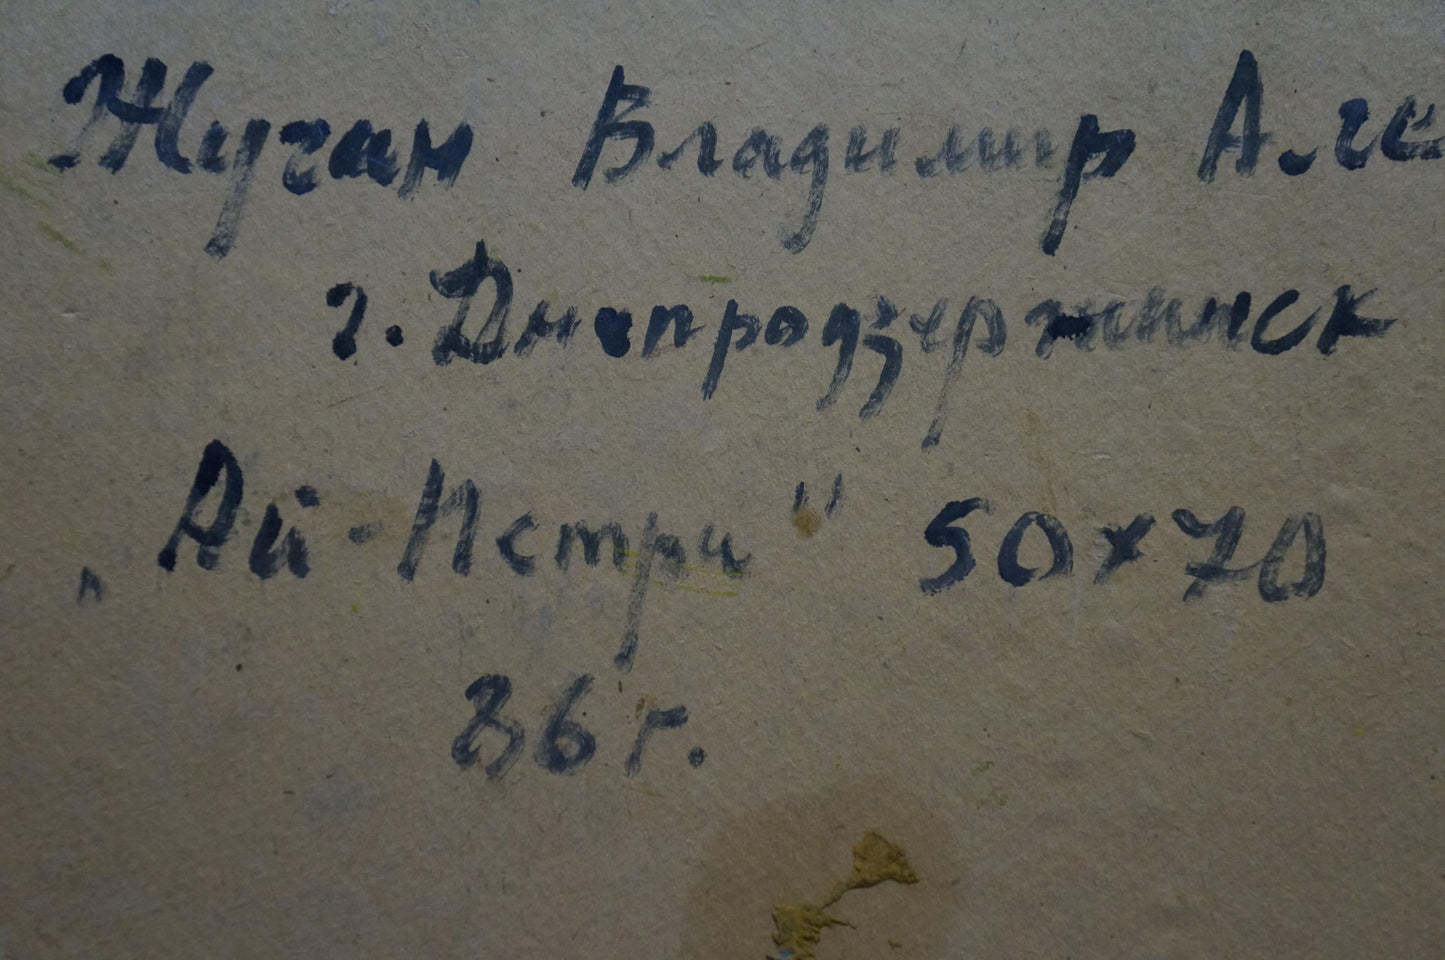 Жуган Владимир Але
г. Днепродзержинск
„Ай-Петри" 50х70
86 г.